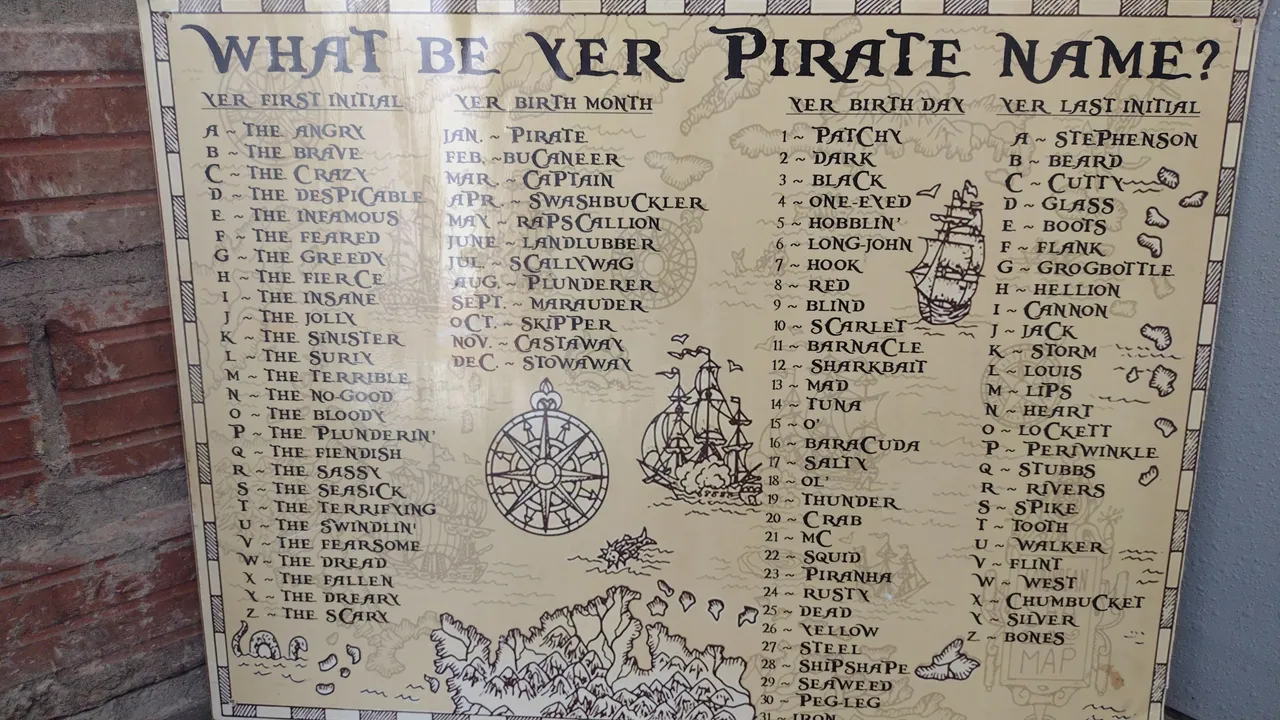 WHAT BE YER PIRATE NAME?
YER FIRST INITIAL
A ~ THE ANGRY
B ~ THE BRAVE
C ~ THE CRAZY
D ~ THE DESPICABLE
E ~ THE INFAMOUS
F ~ THE FEARED
G ~ THE GREEDY
H ~ THE FIERCE
I ~ THE INSANE
J ~ THE JOLLY
K ~ THE SINISTER
L ~ THE SURLY
M ~ THE TERRIBLE
N ~ THE NO-GOOD
O ~ THE BLOODY
P ~ THE PLUNDERIN'
Q ~ THE FIENDISH
R ~ THE SASSY
S ~ THE SEASICK
T ~ THE TERRIFYING
U ~ THE SWINDLIN'
V ~ THE FEARSOME
W ~ THE DREAD
X ~ THE FALLEN
Y ~ THE DREARY
Z ~ THE SCARY
YER BIRTH MONTH
JAN. ~ PIRATE
FEB. ~BUCANEER
MAR. ~ CAPTAIN
APR. ~ SWASHBUCKLER
MAY ~ RAPSCALLION
JUNE ~ LANDLUBBER
JUL. ~ SCALLYWAG
AUG. ~ PLUNDERER
SEPT. ~ MARAUDER
OCT. ~ SKIPPER
NOV. ~ CASTAWAY
DEC. ~ STOWAWAY
YER BIRTH DAY
1 ~ PATCHY
2 ~ DARK
3 ~ BLACK
4 ~ ONE-EYED
5 ~ HOBBLIN'
6 ~ LONG-JOHN
7 ~ HOOK
8 ~ RED
9 ~ BLIND
10 ~ SCARLET
11 ~ BARNACLE
12 ~ SHARKBAIT
13 ~ MAD
14 ~ TUNA
15 ~ O'
16 ~ BARACUDA
17 ~ SALTY
18 ~ OL'
19 ~ THUNDER
20 ~ CRAB
21 ~ MC
22 ~ SQUID
23 ~ PIRANHA
24 ~ RUSTY
25 ~ DEAD
26 ~ YELLOW
27 ~ STEEL
28 ~ SHIPSHAPE
29 ~ SEAWEED
30 ~ PEG-LEG
31 ~ IRON
YER LAST INITIAL
A ~ STEPHENSON
B ~ BEARD
C ~ CUTTY
D ~ GLASS
E ~ BOOTS
F ~ FLANK
G ~ GROGBOTTLE
H ~ HELLION
I ~ CANNON
J ~ JACK
K ~ STORM
L ~ LOUIS
M ~ LIPS
N ~ HEART
O ~ LOCKETT
P ~ PERIWINKLE
Q ~ STUBBS
R ~ RIVERS
S ~ SPIKE
T ~ TOOTH
U ~ WALKER
V ~ FLINT
W ~ WEST
X ~ CHUMBUCKET
Y ~ SILVER
Z ~ BONES
MAP